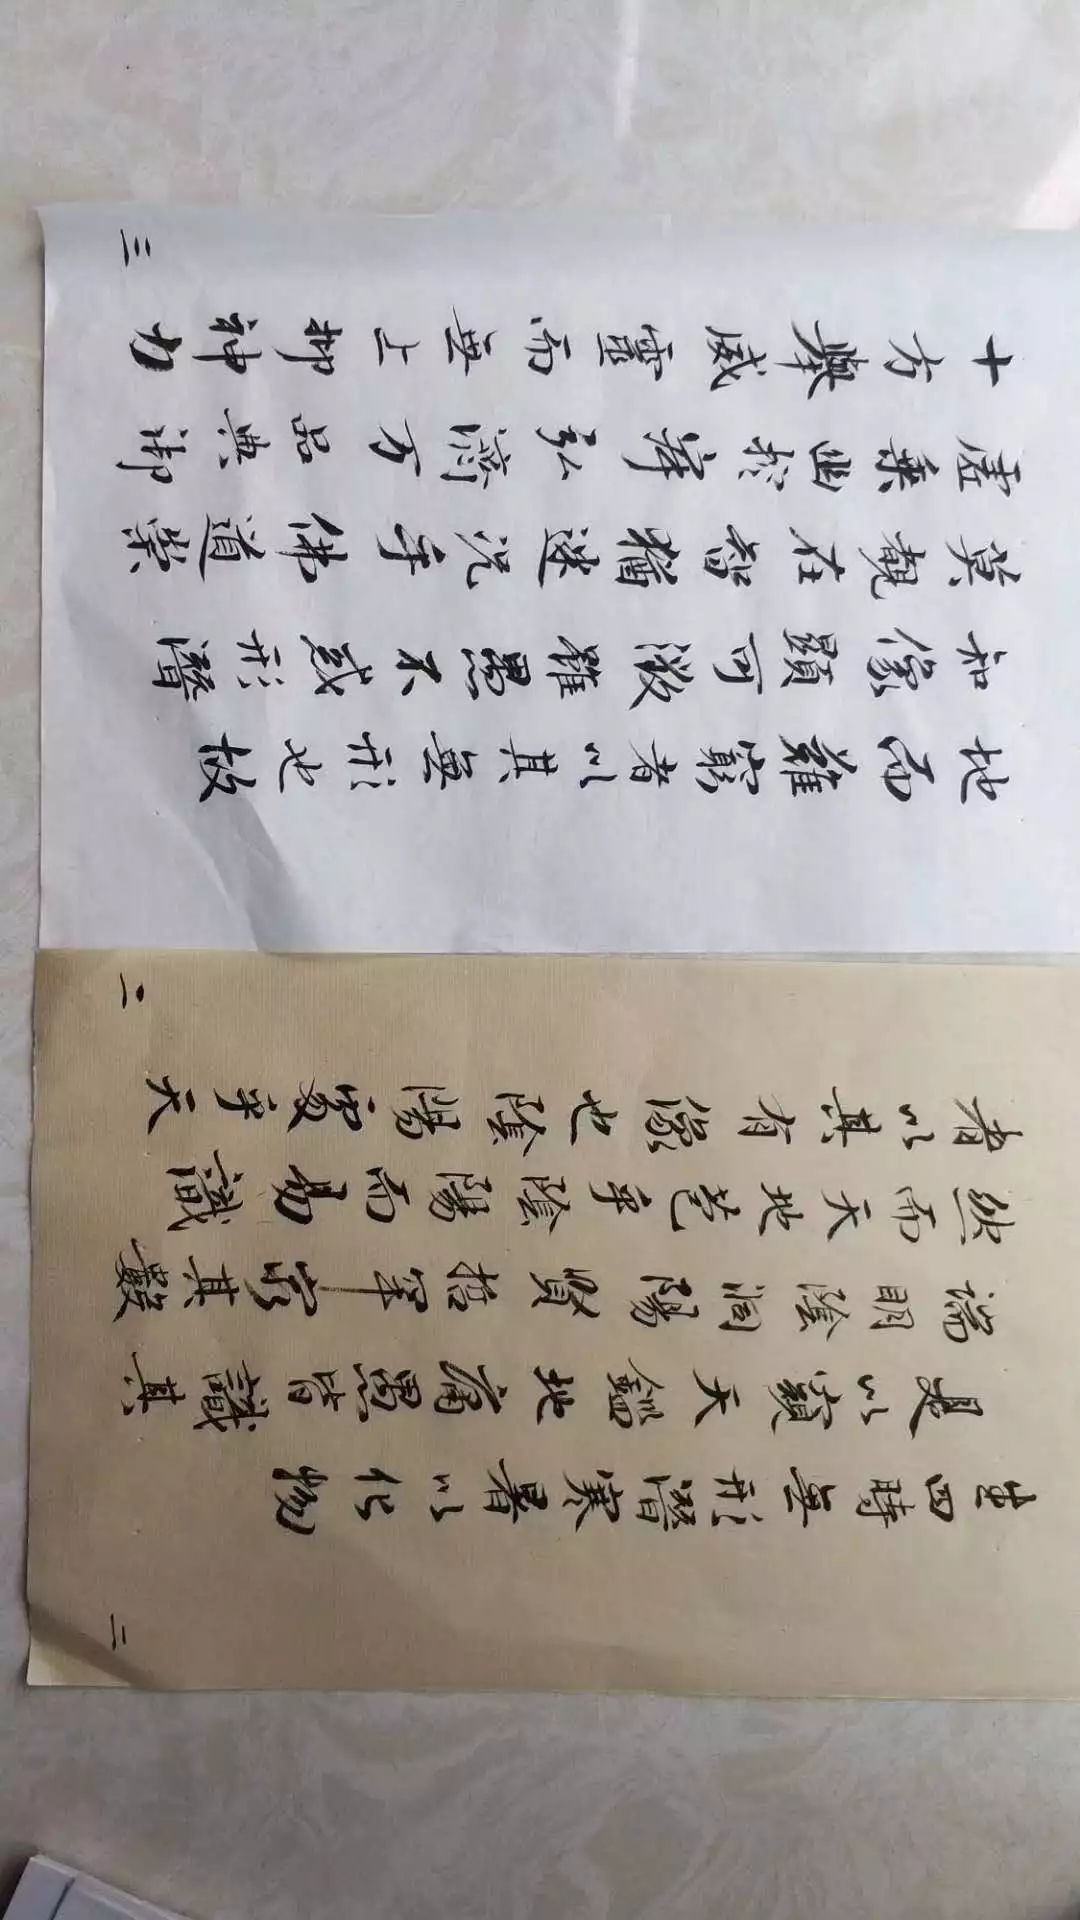 生四時無形潛寒暑以化物
是以窺天鑑地庸愚皆識其
端明陰洞陽賢哲罕窮其數
然而天地苞乎陰陽而易識
者以其有像也陰陽處乎天
二
二
地而難窮者以其無形也故
知像顯可徵雖愚不惑形潛
莫覩在智猶迷況乎佛道崇
虛乘幽控寂弘濟万品典御
十方舉威靈而無上抑神力
三